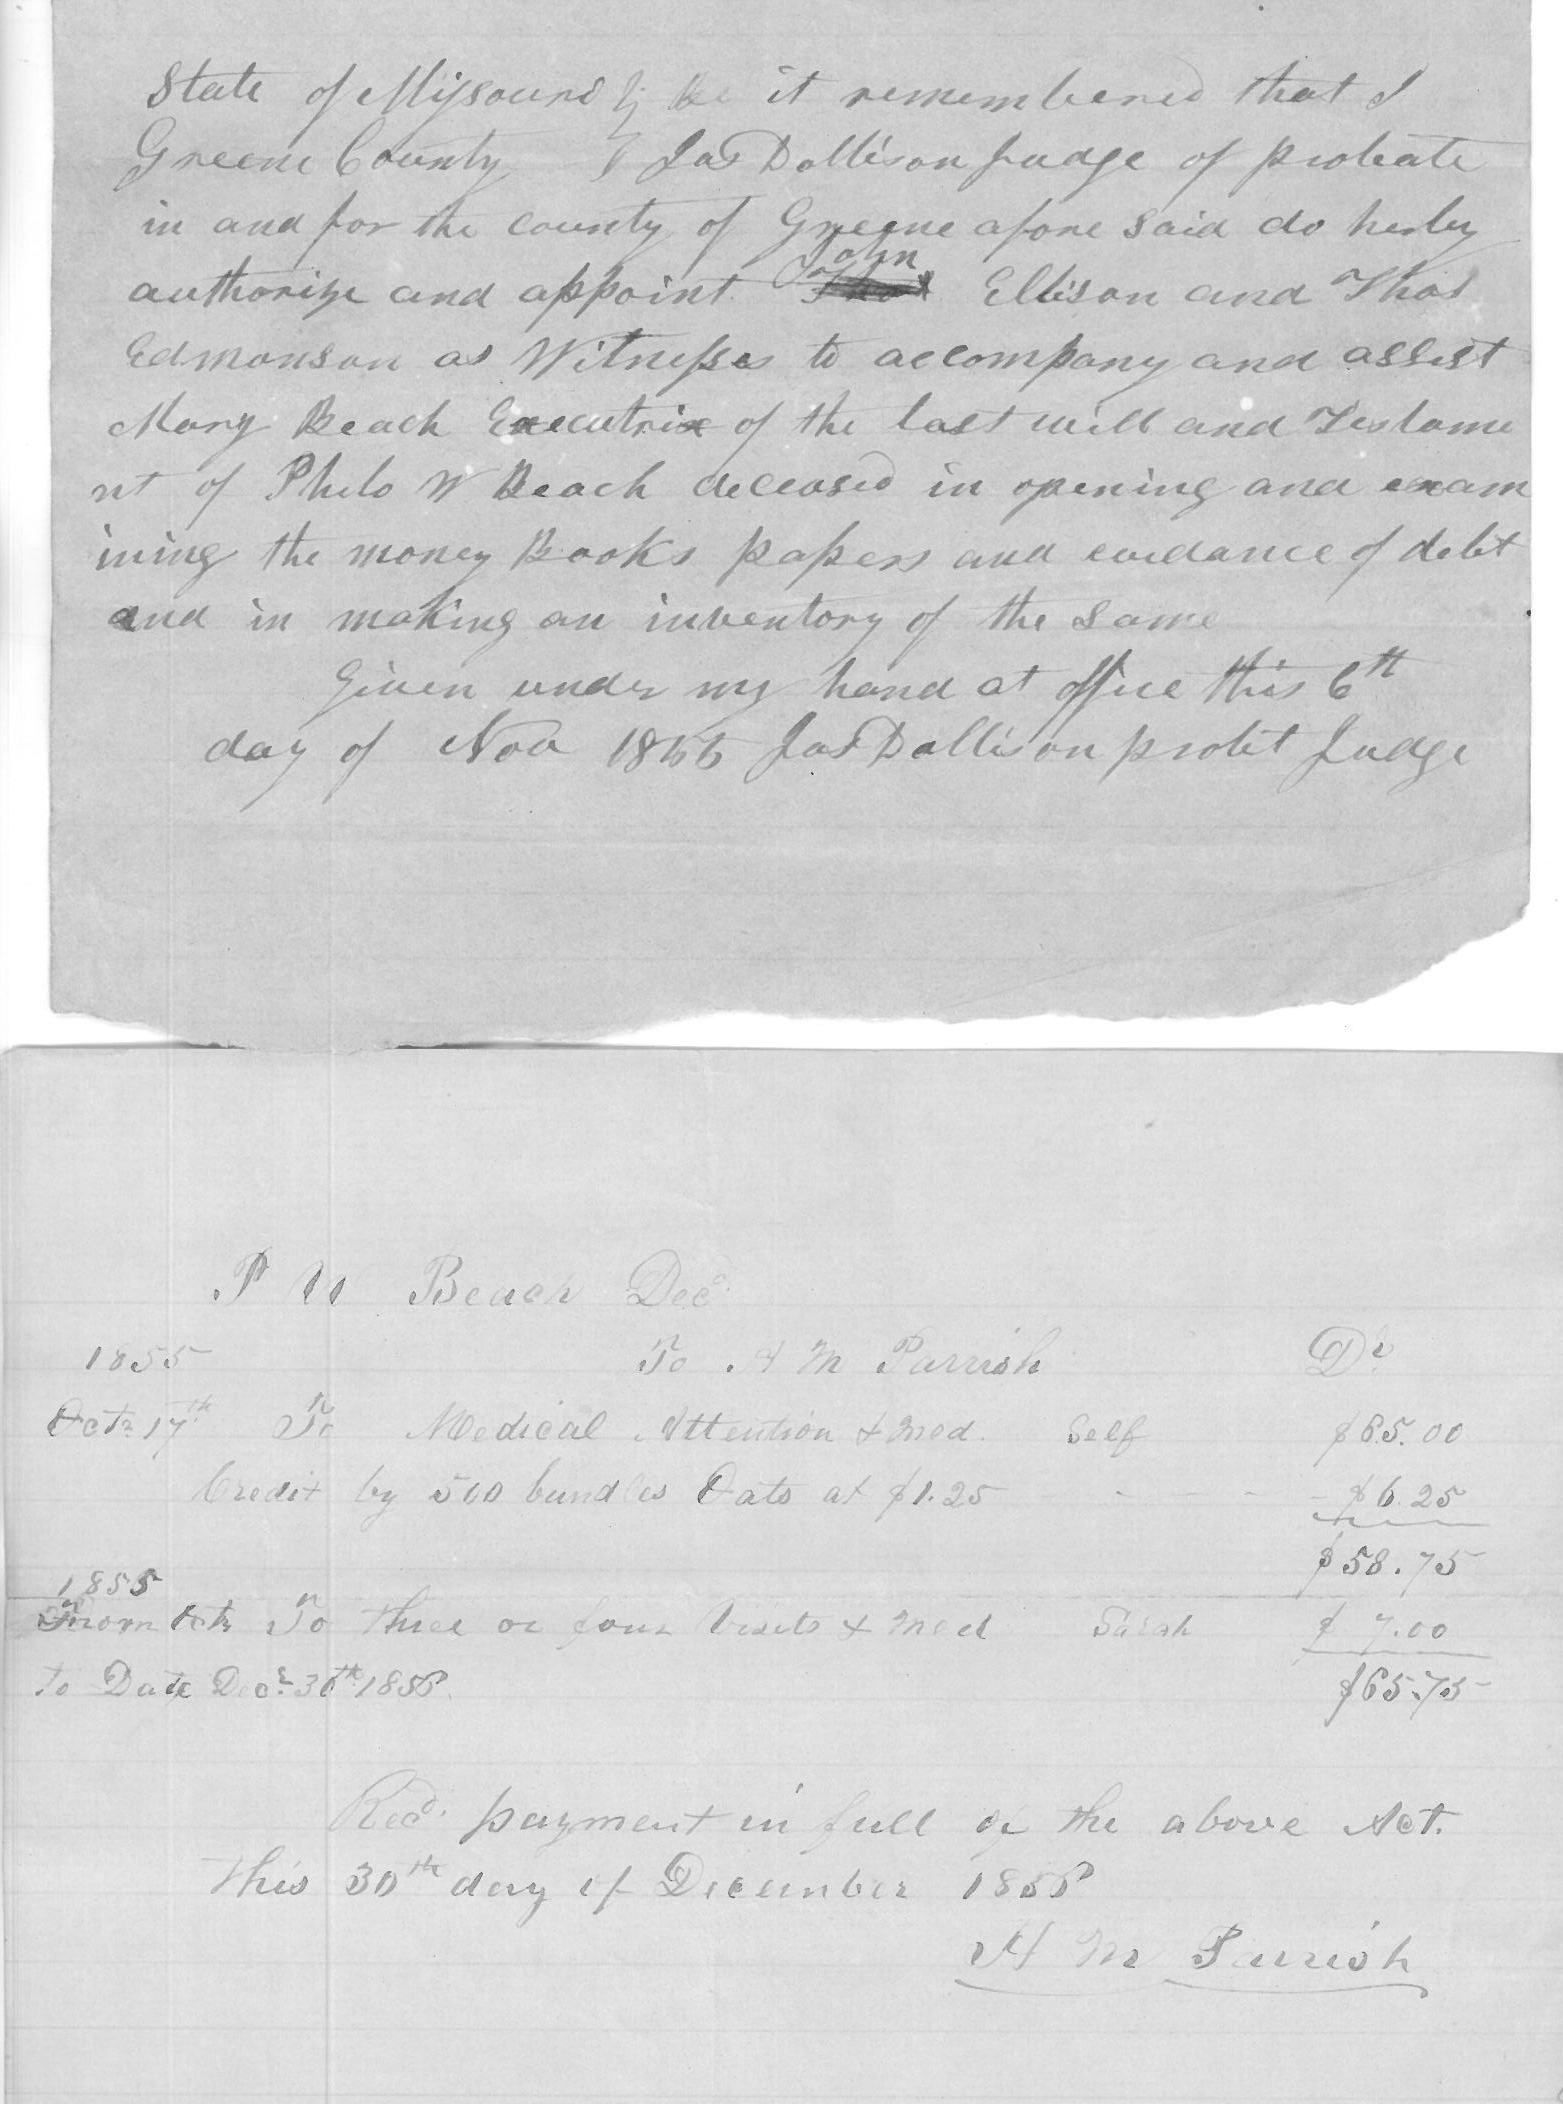 State of Missouri } Be it remembered that I
Greene County } Jas Dollison Judge of probate
in and for the county of Greene afore said do herby
authorize and appoint John Ellison and Thos
Edmonson as Witnesses to accompany and assist
Mary Beach Executrix of the last will and Testame
nt of Philo W Beach deceased in opening and exam
ining the money Books papers and evedance of debt
and in making an inventory of the same
Given under my hand at office this 6th
day of Nov Jas Dollison probt Judge
P W Beach Decd.
1855 To A M Parrish Dr
Octr 17th To Medical Attention & Med. Self $65.00
Credit by 500 bundles Oats at $1.25 - - - - $6.25
$58.75
1855
From Octr To three or four Visits & Med Sarah $7.00
to Date Decr 30th 1856. $65.75
Recd. payment in full of the above Act.
This 30th day of December 1856
A M Parrish